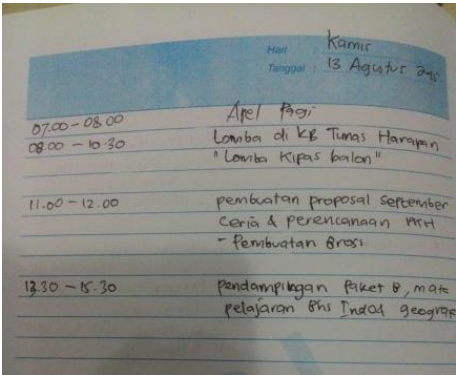 Hari : Kamis
Tanggal : 13 Agustus 2015
07.00 - 08.00 Apel Pagi
08.00 - 10.30 Lomba di KB Tunas Harapan
"Lomba Kipas balon"
11.00 - 12.00 pembuatan proposal September
Ceria & perencanaan
- Pembuatan Bross
13.30 - 15.30 pendampingan Paket B, mata
pelajaran Bhs Indo& geograf